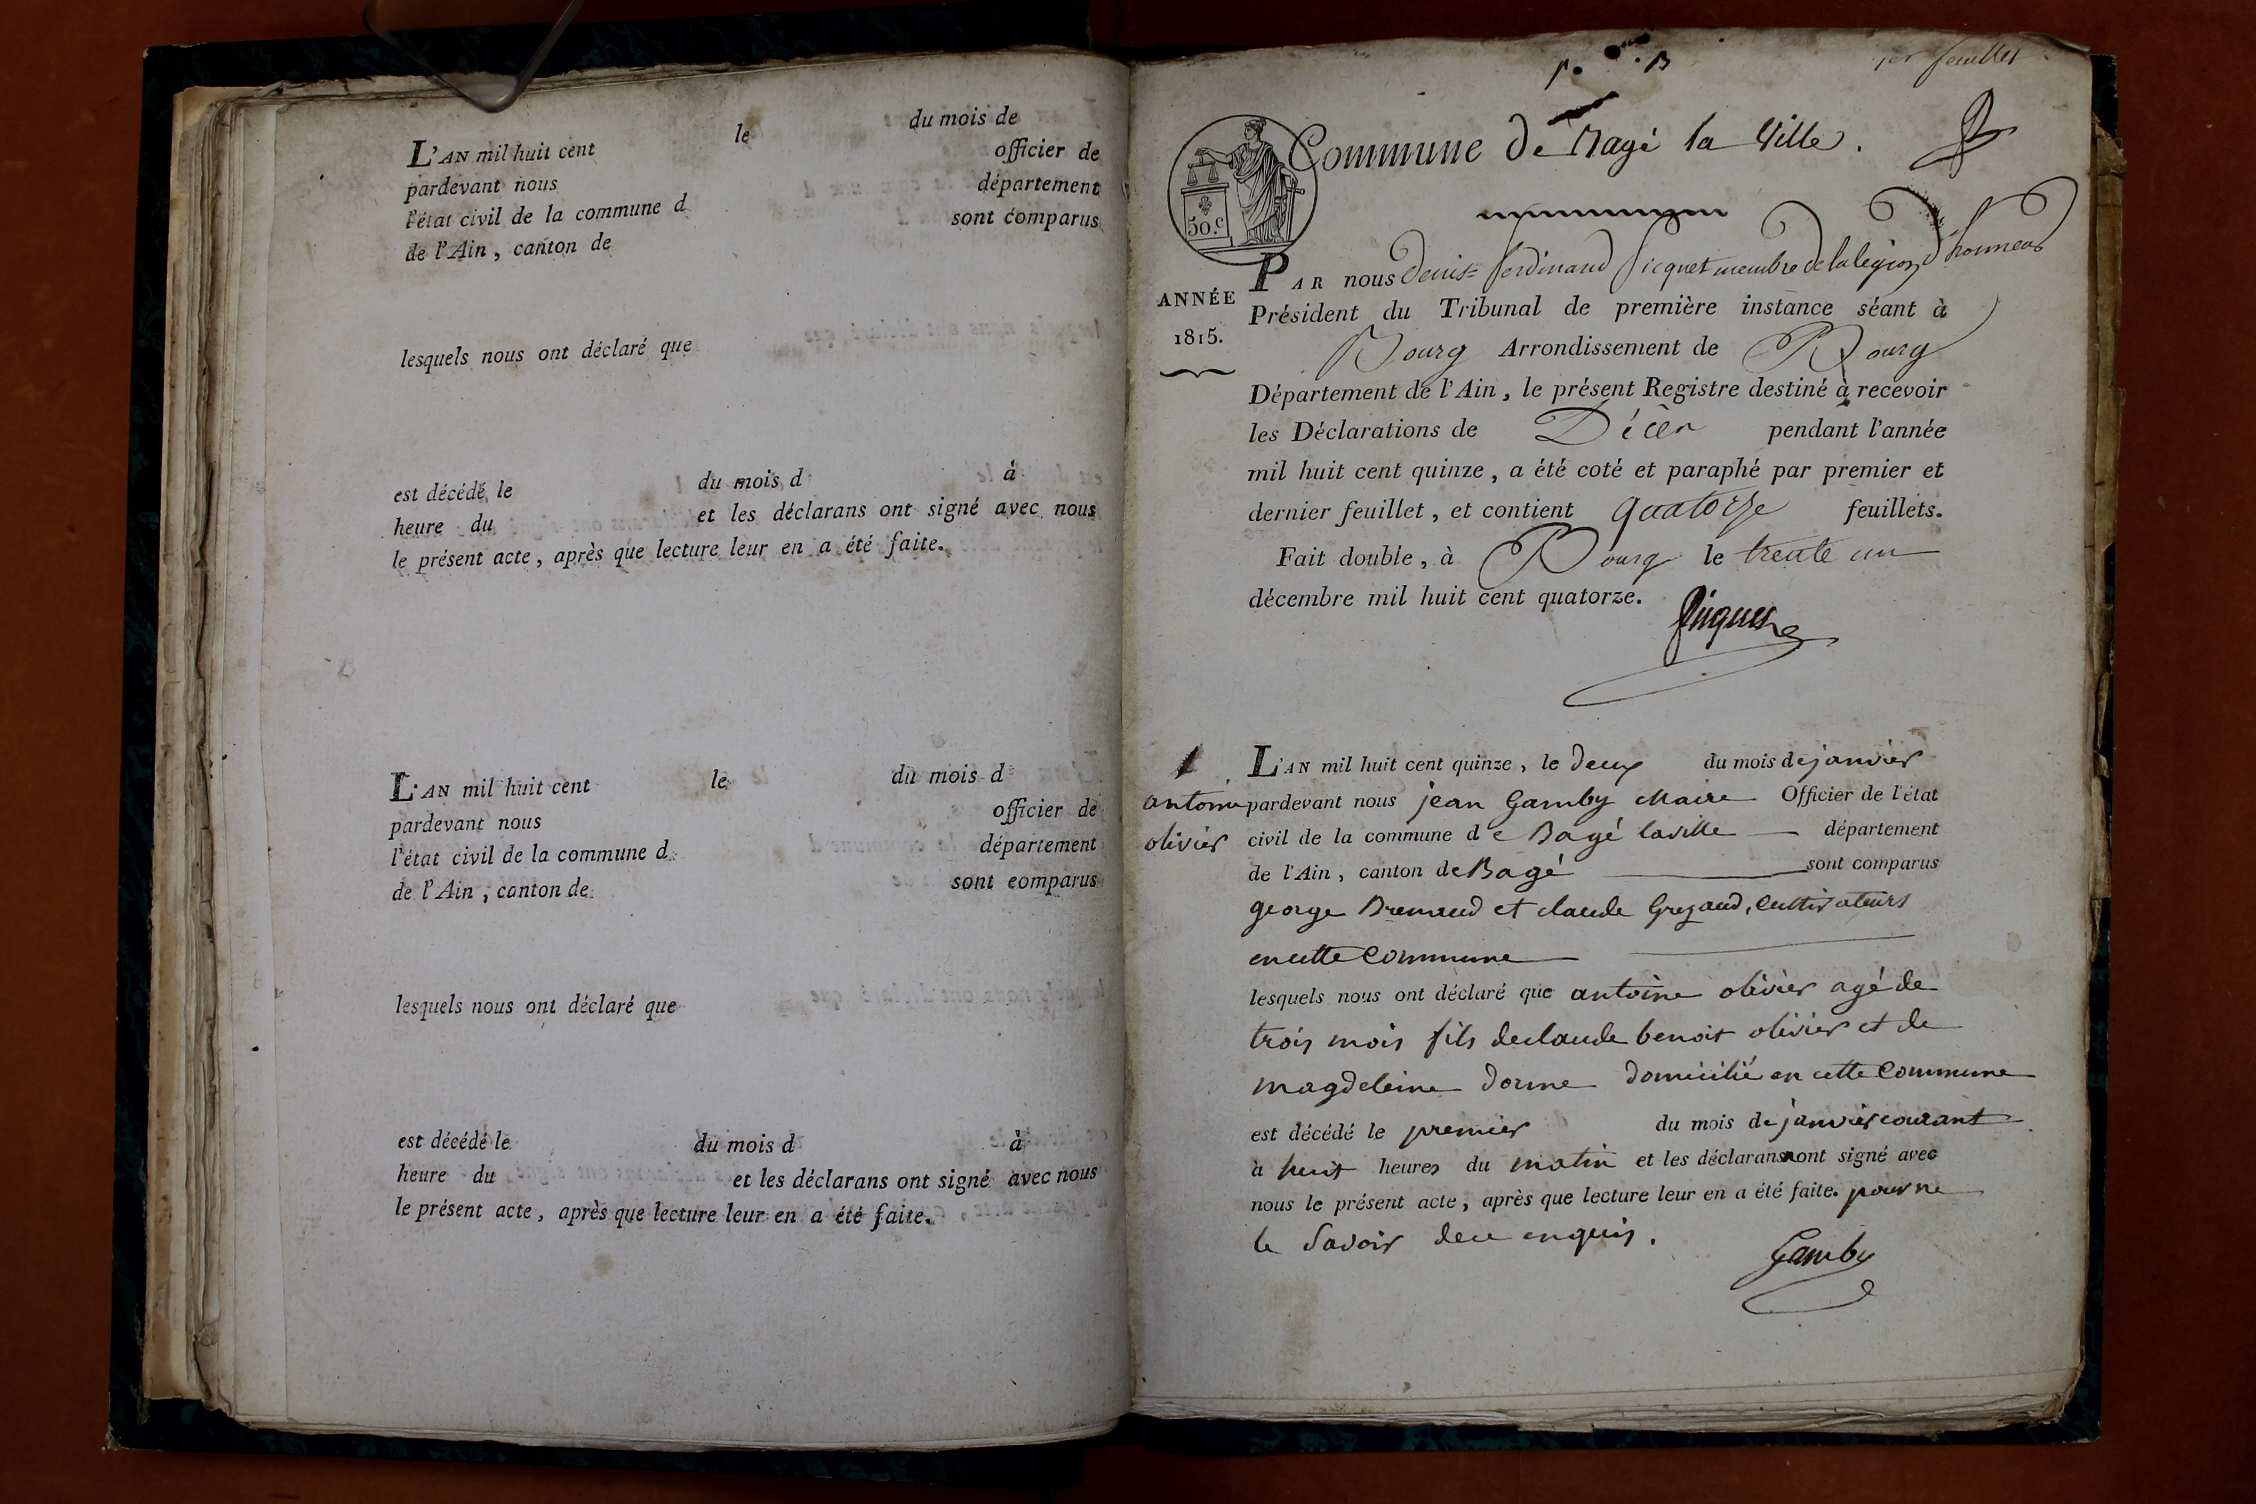 L'AN mil huit cent le du mois de
pardevant nous officier de
l'état civil de la commune d département
de l'Ain, canton de sont comparus
lesquels nous ont déclaré que
est décédé le du mois d à
heure du et les déclarans ont signé avec nous
le présent acte, après que lecture leur en a été faite.
L'AN mil huit cent le du mois d
pardevant nous officier de
l'état civil de la commune d département
de l'Ain, canton de sont comparus
lesquels nous ont déclaré que
est décédé le du mois d à
heure du et les déclarans ont signé avec nous
le présent acte, après que lecture leur en a été faite.
1er feuillet
Commune de Bagé la Ville.
50.c
PAR nous Denis Ferdinand Picquet membre de la légion d'honneur
ANNÉE
1815.
Président du Tribunal de première instance séant à
Bourg Arrondissement de Bourg
Département de l'Ain, le présent Registre destiné à recevoir
les Déclarations de Décès pendant l'année
mil huit cent quinze, a été coté et paraphé par premier et
dernier feuillet, et contient quatorze feuillets.
Fait double, à Bourg le trente un
décembre mil huit cent quatorze.
Picquet
1
antoine
olivier
L'AN mil huit cent quinze, le deux du mois de janvier
pardevant nous jean Gamby Maire Officier de l'état
civil de la commune de Bagé laville département
de l'Ain, canton de Bagé sont comparus
george Bremaud et claude Grezaud, cultivateurs
en cette commune
lesquels nous ont déclaré que antoine olivier agé de
trois mois fils de claude benoit olivier et de
magdeleine dorme domicilié en cette commune
est décédé le premier du mois de janvier courant
à huit heures du matin et les déclarans nont signé avec
nous le présent acte, après que lecture leur en a été faite. pour ne
le savoir de ce enquis.
Gamby